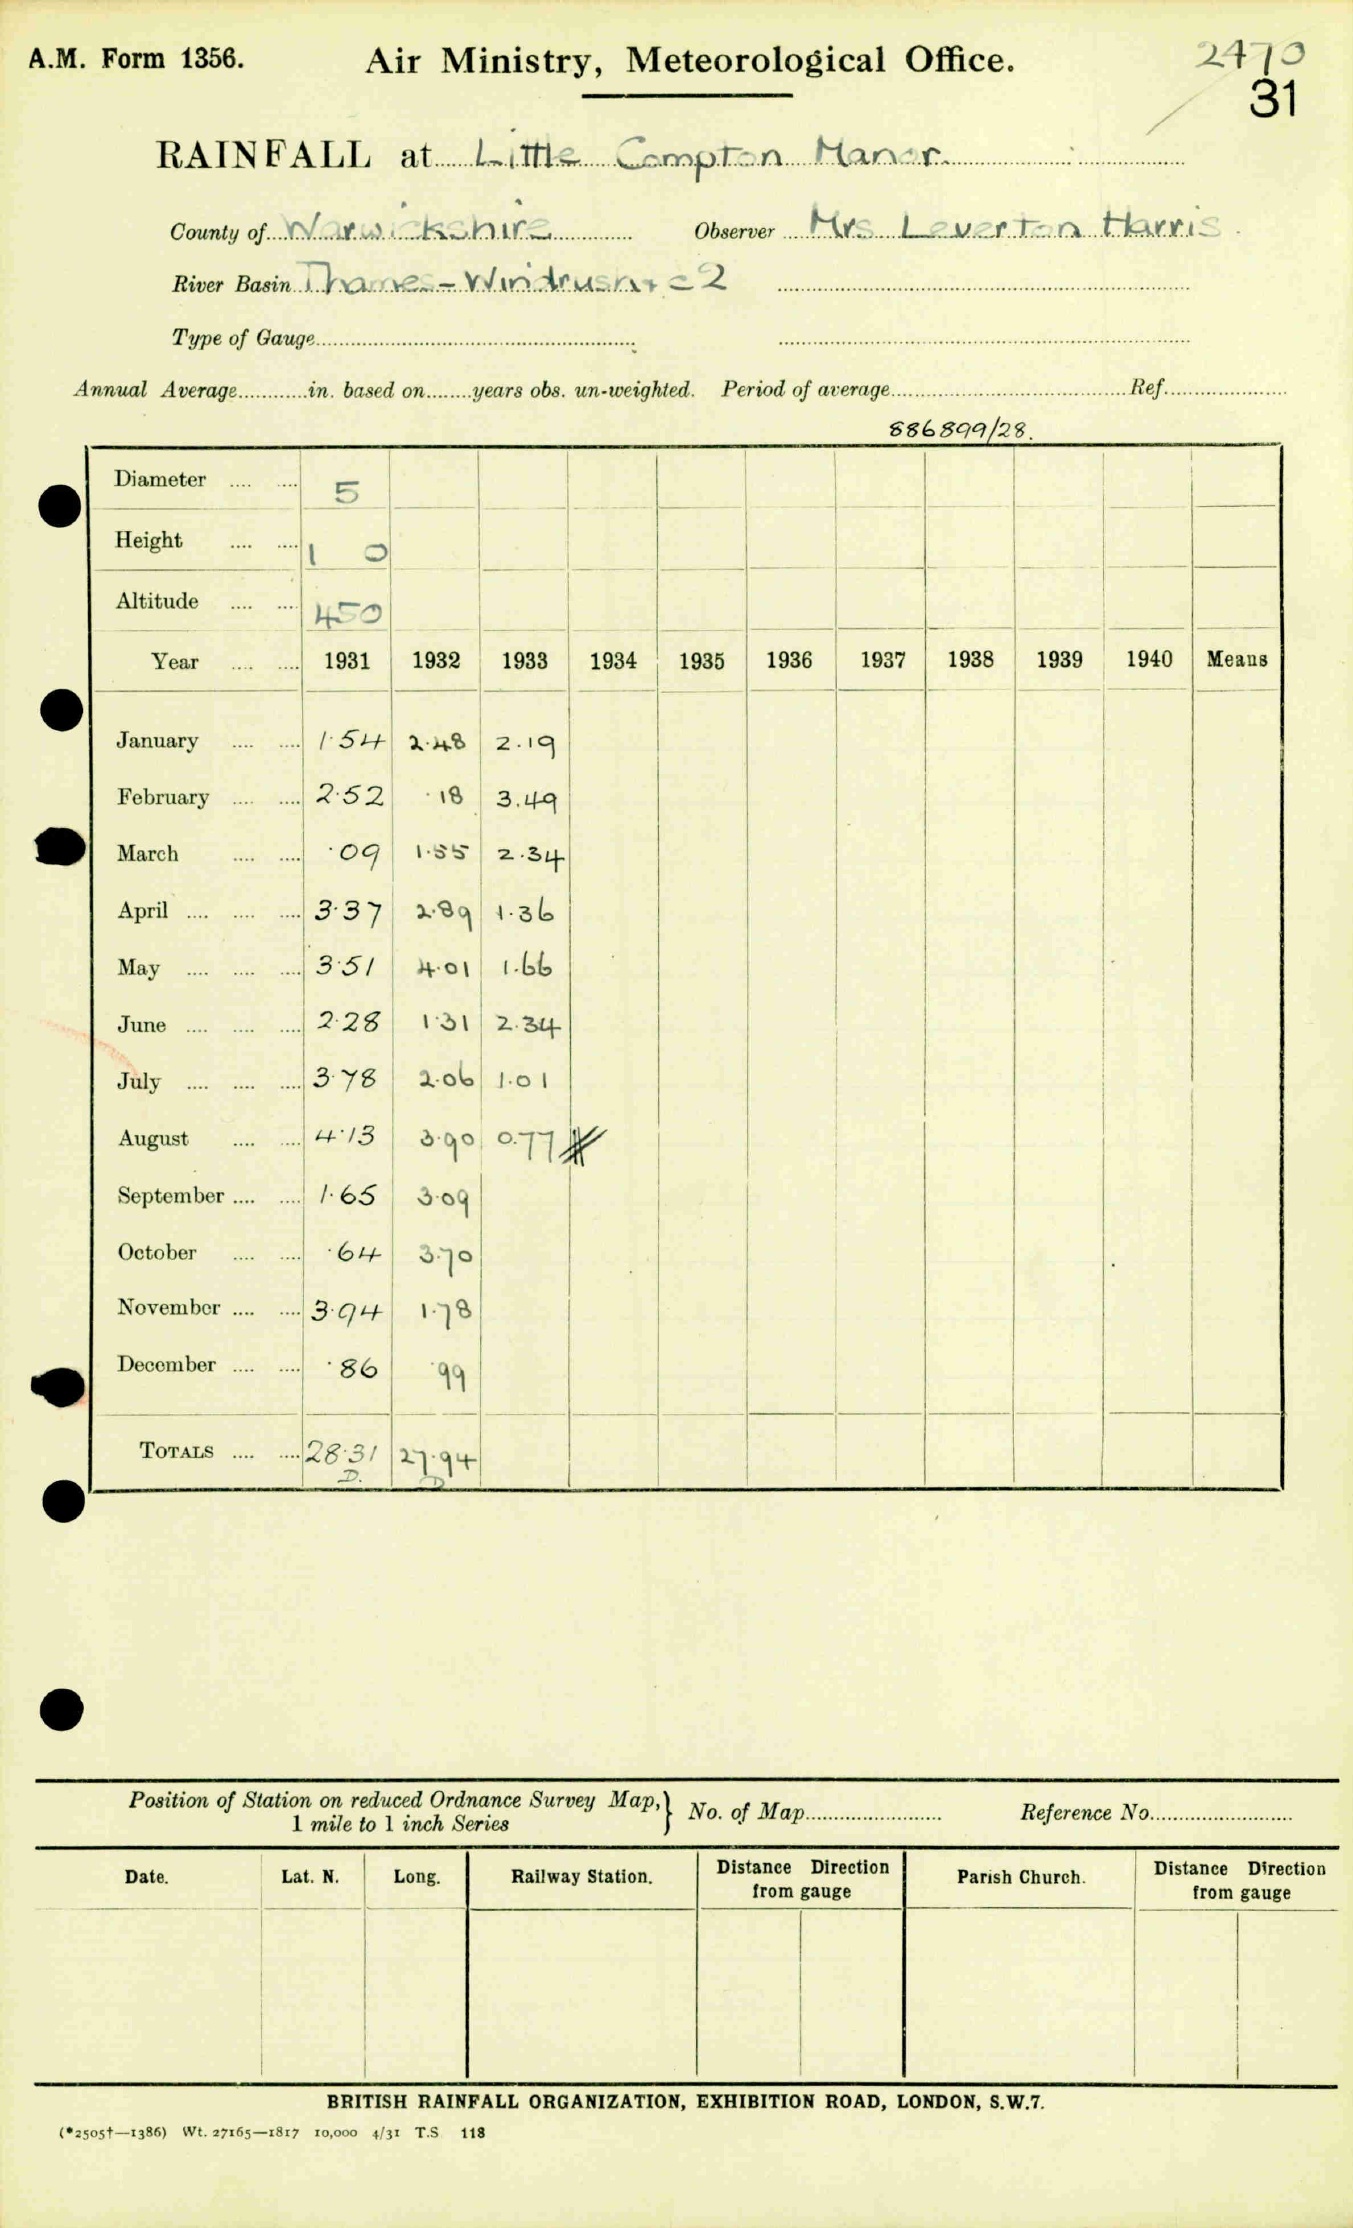 A.M. Form 1356.
Air Ministry, Meteorological Office.
2470
31
RAINFALL at Little Compton Manor.
County of Warwickshire Observer Mrs Leverton Harris.
River Basin Thames - Windrush + c 2
Type of Gauge
Annual Average in. based on years obs. un-weighted. Period of average Ref.
886899/28.
Diameter 5
Height 1 0
Altitude 450
Year 1931 1932 1933 1934 1935 1936 1937 1938 1939 1940 Means
January 1.54 2.48 2.19
February 2.52 .18 3.49
March .09 1.55 2.34
April 3.37 2.89 1.36
May 3.51 4.01 1.66
June 2.28 1.31 2.34
July 3.78 2.06 1.01
August 4.13 3.90 0.77
September 1.65 3.09
October .64 3.70
November 3.94 1.78
December .86 .99
TOTALS 28.31 27.94
D. D
Position of Station on reduced Ordnance Survey Map, } No. of Map Reference No.
1 mile to 1 inch Series
Date. Lat. N. Long. Railway Station. Distance Direction from gauge Parish Church. Distance Direction from gauge
BRITISH RAINFALL ORGANIZATION, EXHIBITION ROAD, LONDON, S.W.7.
(*2505†—1386) Wt. 27165—1817 10,000 4/31 T.S 118